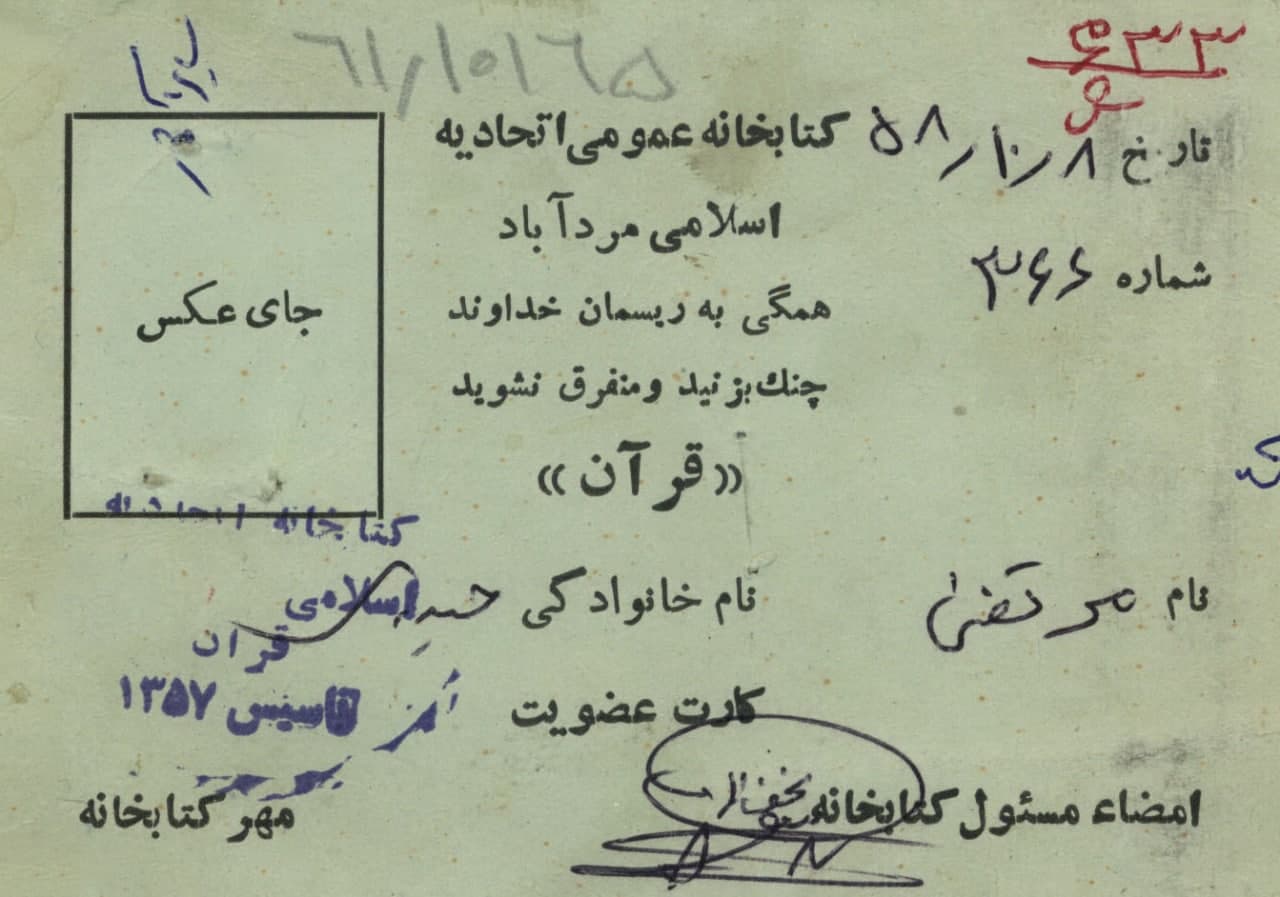 ۶۳۳
۶۱/۱۰۱۶۵
تاریخ ۵۸/۱۰/۸
کتابخانه عمومی اتحادیه
اسلامی مردآباد
شماره ۳۶۶
همگی به ریسمان خداوند
چنك بزنید ومنفرق نشوید
«قرآن»
جای عکس
کتابخانه اتحادیه
اسلامی
قرآن
تاسیس ۱۳۵۷
نام مرتضی
نام خانوادگی
کارت عضویت
امضاء مسئول کتابخانه
مهر کتابخانه